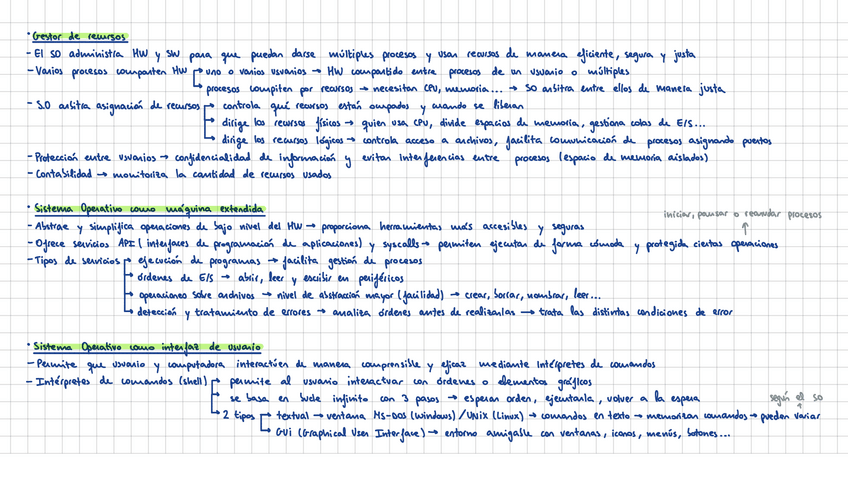 · Gestor de recursos
- El SO administra HW y SW para que puedan darse múltiples procesos y usan recursos de manera eficiente, segura y justa
- Varios procesos comparten HW → uno o varios usuarios → HW compartido entre procesos de un usuario o múltiples
→ procesos compiten por recursos → necesitan CPU, memoria... → SO arbitra entre ellos de manera justa
- S.O arbitra asignación de recursos → controla qué recursos están ocupados y cuando se liberan
→ dirige los recursos físicos → quien usa CPU, divide espacios de memoria, gestiona colas de E/S...
→ dirige los recursos lógicos → controla acceso a archivos, facilita comunicación de procesos asignando puertos
- Protección entre usuarios → confidencialidad de información y evitan interferencias entre procesos (espacio de memoria aislados)
- Contabilidad → monitoriza la cantidad de recursos usados
· Sistema Operativo como máquina extendida
iniciar, pausar o reanudar procesos
- Abstrae y simplifica operaciones de bajo nivel del HW → proporciona herramientas más accesibles y seguras
- Ofrece servicios API (interfaces de programación de aplicaciones) y syscalls → permiten ejecutar de forma cómoda y protegida ciertas operaciones
- Tipos de servicios → ejecución de programas → facilita gestión de procesos
→ órdenes de E/S → abrir, leer y escribir en periféricos
→ operaciones sobre archivos → nivel de abstracción mayor (facilidad) → crear, borrar, nombrar, leer...
→ detección y tratamiento de errores → analiza órdenes antes de realizarlas → trata las distintas condiciones de error
· Sistema Operativo como interfaz de usuario
- Permite que usuario y computadora interactúen de manera comprensible y eficaz mediante intérpretes de comandos
- Intérpretes de comandos (shell) → permite al usuario interactuar con órdenes o elementos gráficos
→ se basa en bucle infinito con 3 pasos → esperan orden, ejecutarla, volver a la espera
según el SO
→ 2 tipos → textual → ventana MS-DOS (Windows) / UNIX (Linux) → comandos en texto → memorizan comandos → pueden variar
→ GUI (Graphical User Interface) → entorno amigable con ventanas, iconos, menús, botones...